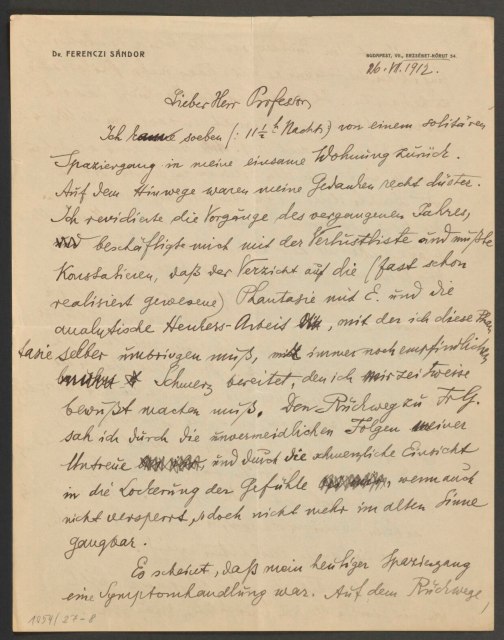 Dr. FERENCZI SÁNDOR
BUDAPEST, VII., ERZSÉBET-KÖRUT 54.
26. VII. 1912.
Lieber Herr Professor,
Ich kam soeben (: 11 1/2 h Nachts) von einem solitären
Spaziergang in meine einsame Wohnung zurück.
Auf dem Hinwege waren meine Gedanken recht düster.
Ich revidierte die Vorgänge des vergangenen Jahres,
beschäftigte mich mit der Verlustliste und mußte
Konstatieren, daß der Verzicht auf die (fast schon
realisiert gewesene) Phantasie mit E. und die
analytische Henkers-Arbeit, mit der ich diese Phan
tasie selber umbringen muß, mir immer noch empfindlichen
Schmerz bereitet, den ich mir zeitweise
bewußt machen muß. Den Rückweg zu Fr. G.
sah ich durch die unvermeidlichen Folgen meiner
Untreue, und durch die schmerzliche Einsicht
in die Lockerung der Gefühle, wenn auch
nicht versperrt, doch nicht mehr im alten Sinne
gangbar.
Es scheint, daß mein heutiger Spaziergang
eine Symptomhandlung war. Auf dem Rückwege,
1054/27-8